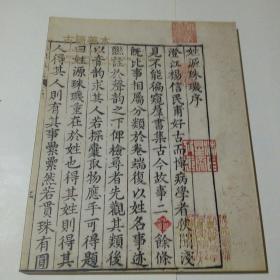 古籍善本
姓源珠璣序
澄江楊信民甫好古而博病學者聞淺
見不能徧窺羣書集古今故事二千餘條
旣比事相屬分類於卷端復以姓名事迹
於聲韵之下俾檢尋者先觀其類後
以音韵求其人若探囊取物應手可得題
曰姓源珠璣重在於姓也得其姓則得其
人得其人則有其事纍纍然若貫珠有圓